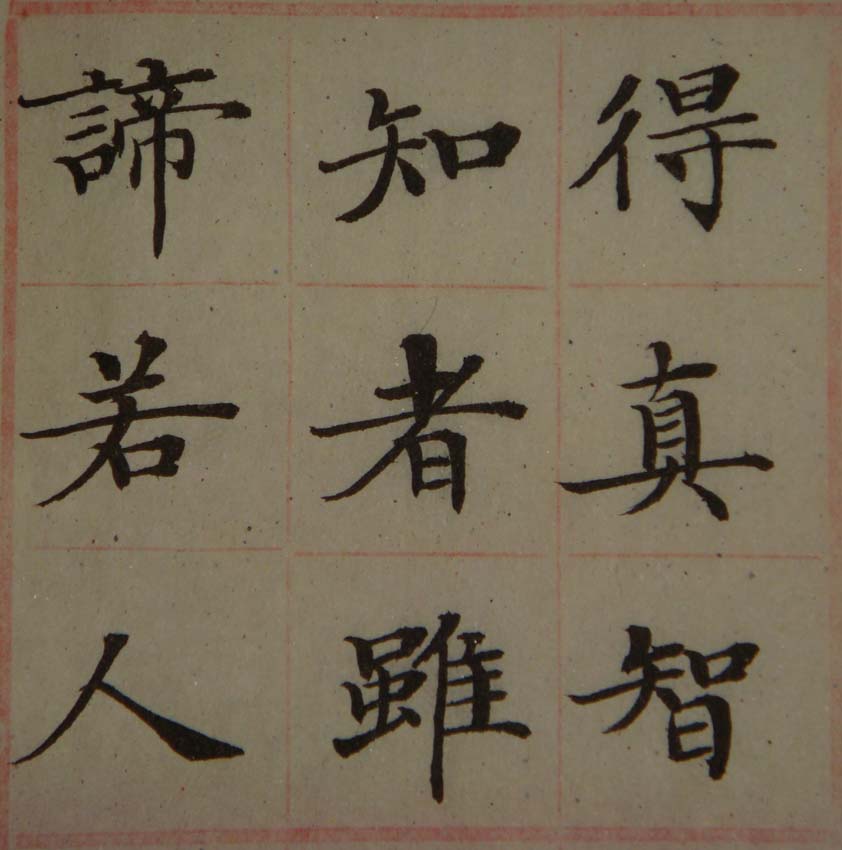 得真智
知者雖
諦若人